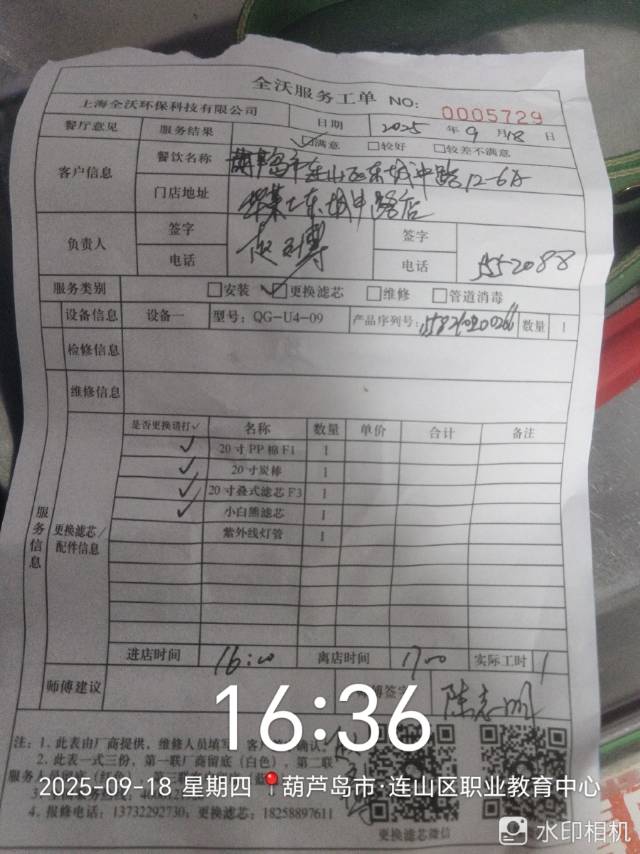 全沃服务工单 NO: 0005729
上海全沃环保科技有限公司 日期 2025 年 9 月 18 日
餐厅意见 服务结果 ☑满意 □较好 □较差不满意
客户信息 餐饮名称 葫芦岛市连山区东城中路12-6号
门店地址 东城中路店
负责人 签字 签字
电话 电话 1552088
服务类别 □安装 ☑更换滤芯 □维修 □管道消毒
设备信息 设备一 型号: QG-U4-09 产品序列号: 数量 1
检修信息
维修信息
服务信息 更换滤芯/配件信息
是否更换请打✓ 名称 数量 单价 合计 备注
✓ 20寸PP棉F1 1
✓ 20寸炭棒 1
✓ 20寸叠式滤芯F3 1
✓ 小白熊滤芯 1
紫外线灯管 1
进店时间 16:00 离店时间 17:00 实际工时 1
师傅建议 签字 陈志明
注: 1. 此表由厂商提供，维修人员填写，客户 确认
2. 此表一式三份，第一联厂商留底（白色），第二联
服务
4. 报修电话: 13732292730; 更换滤芯: 18258897611
更换滤芯微信
16:36
2025-09-18 星期四 葫芦岛市·连山区职业教育中心
水印相机